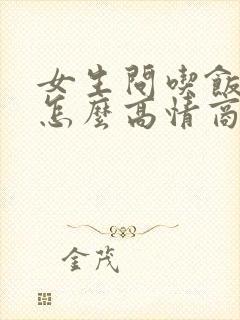 女生問喫飯
怎麼高情商
金茂